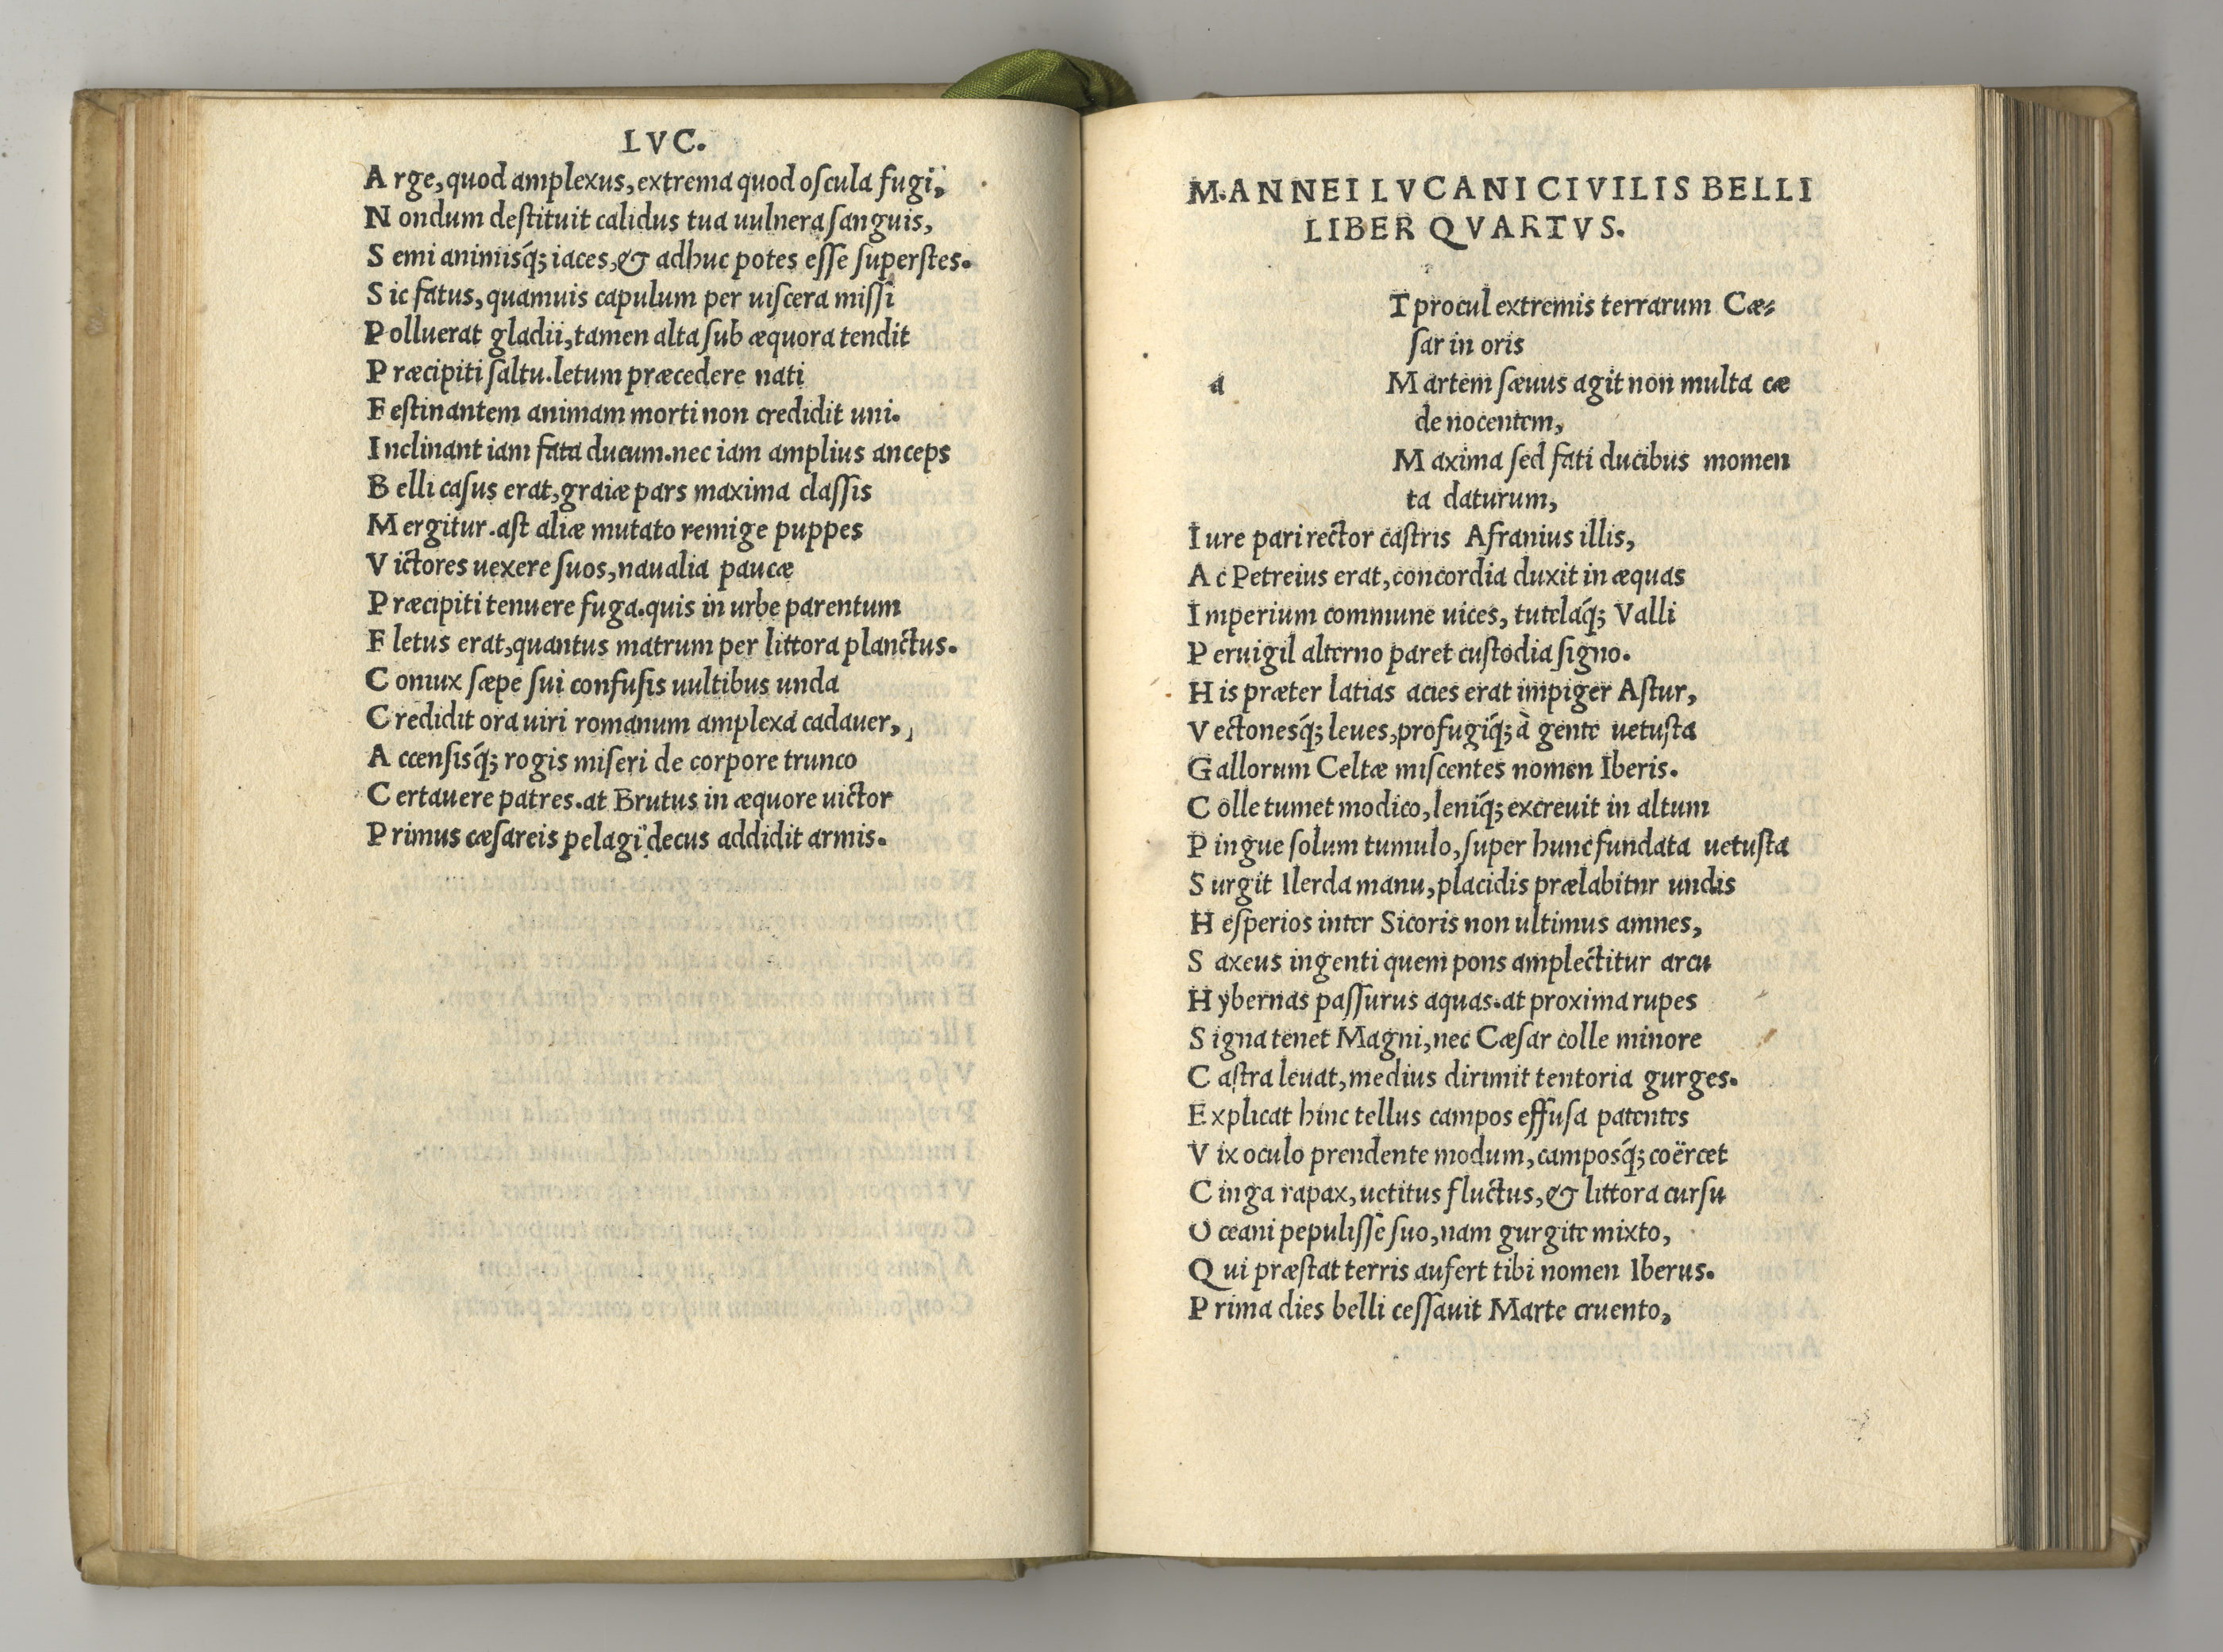 LVC.
A rge, quod amplexus, extrema quod oſcula fugi,
N ondum deſtituit calidus tua uulnera ſanguis,
S emi animisq́; iaces, & adhuc potes eſſe ſuperſtes.
S ic fatus, quamuis capulum per uiſcera miſſi
P olluerat gladii, tamen alta ſub æquora tendit
P ræcipiti ſaltu. letum præcedere nati
F eſtinantem animam morti non credidit uni.
I nclinant iam fata ducum. nec iam amplius anceps
B elli caſus erat, graiæ pars maxima claſſis
M ergitur. aſt aliæ mutato remige puppes
V ictores uexere ſuos, naualia paucæ
P ræcipiti tenuere fuga. quis in urbe parentum
F letus erat, quantus matrum per littora planctus.
C oniux ſæpe ſui confuſis uultibus unda
C redidit ora uiri romanum amplexa cadauer,
A ccenſisq́; rogis miſeri de corpore trunco
C ertauere patres. at Brutus in æquore uictor
P rimus cæſareis pelagi decus addidit armis.
M. ANNEI LVCANI CIVILIS BELLI
LIBER QVARTVS.
T procul extremis terrarum Cæ-
ſar in oris
a M artem ſæuus agit non multa cæ
de nocentem,
M axima ſed fati ducibus momen
ta daturum,
I ure pari rector caſtris Afranius illis,
A c Petreius erat, concordia duxit in æquas
I mperium commune uices, tutelaq́; Valli
P eruigil alterno paret cuſtodia ſigno.
H is præter latias acies erat impiger Aſtur,
V ectonesq́; leues, profugiq́; à gente uetuſta
G allorum Celtæ miſcentes nomen Iberis.
C olle tumet modico, leniq́; excreuit in altum
P ingue ſolum tumulo, ſuper hunc fundata uetuſta
S urgit Ilerda manu, placidis prælabitur undis
H eſperios inter Sicoris non ultimus amnes,
S axeus ingenti quem pons amplectitur arcu
H ybernas paſſurus aquas. at proxima rupes
S igna tenet Magni, nec Cæſar colle minore
C aſtra leuat, medius dirimit tentoria gurges.
E xplicat hinc tellus campos effuſa patentes
V ix oculo prendente modum, camposq́; coërcet
C inga rapax, uetitus fluctus, & littora curſu
O ceani pepuliſſe ſuo, nam gurgite mixto,
Q ui præſtat terris aufert tibi nomen Iberus.
P rima dies belli ceſſauit Marte cruento,